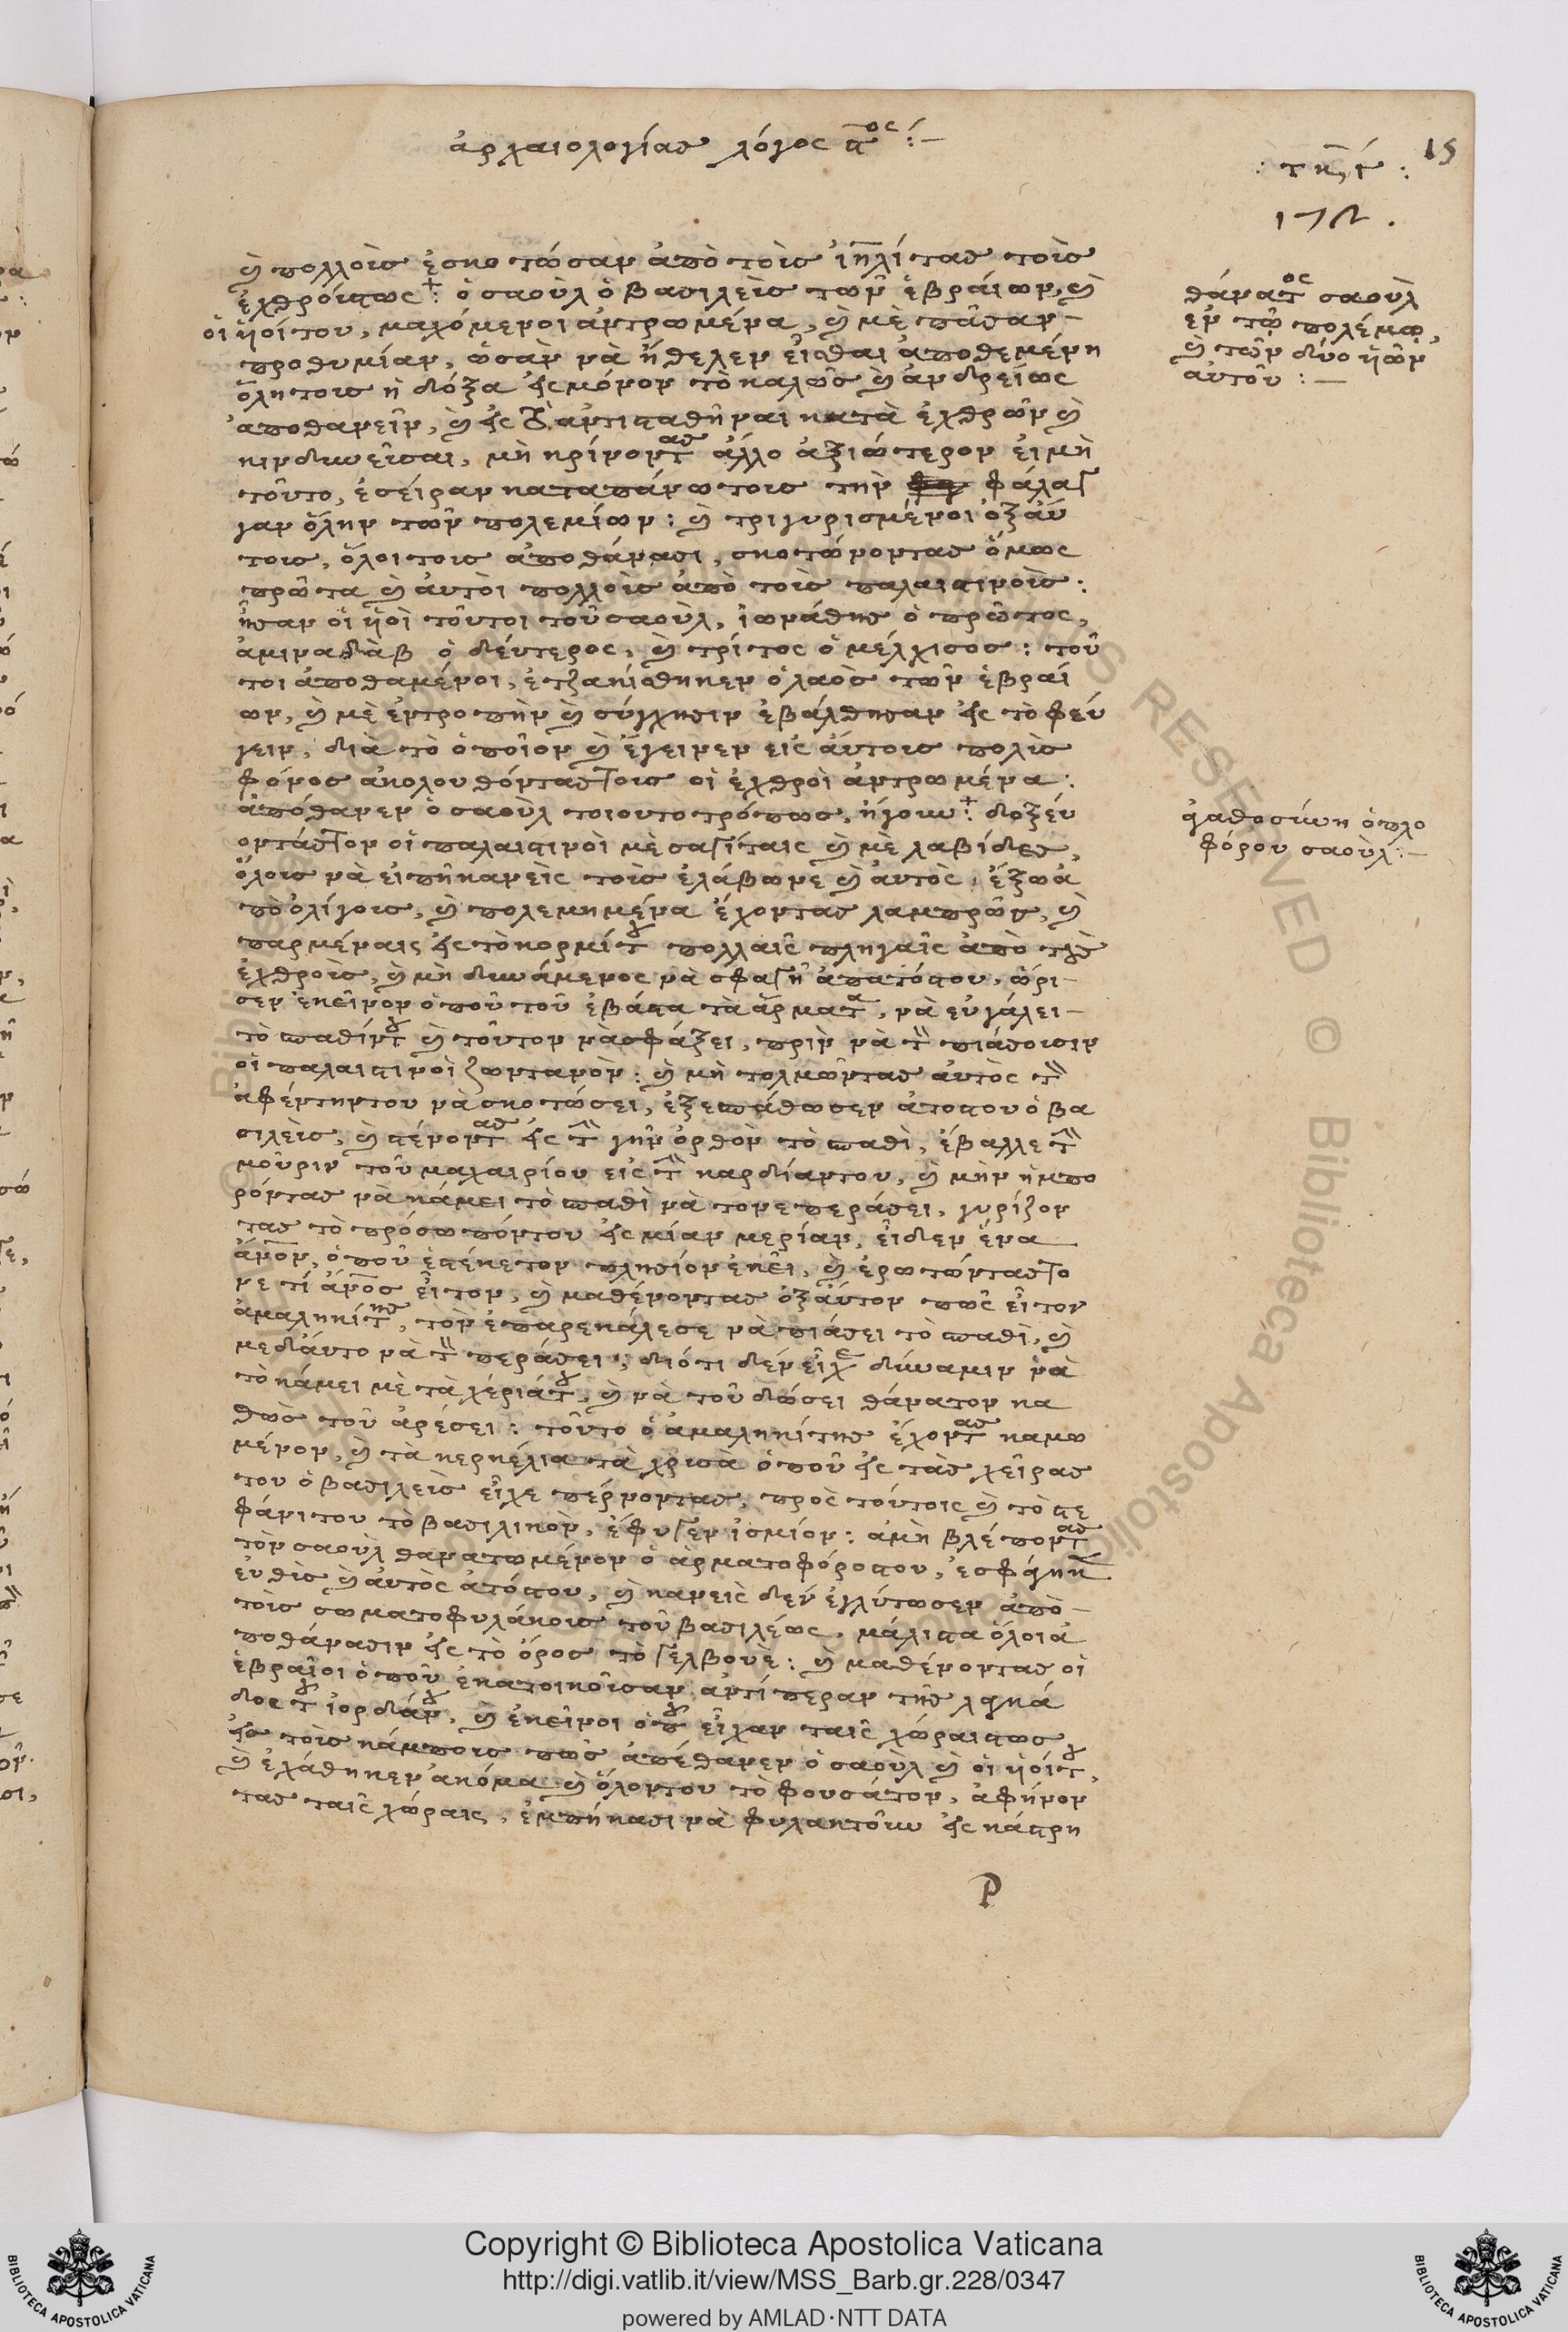 ἀρχαιολογίας λόγος ζος :—
15
: τκς :
172.
καὶ πολλοὺς ἐσκοτώσαν ἀπὸ τοὺς ἰηλίτας τοὺς
ἐχθρούς τως : ὁ σαοὺλ ὁ βασιλεὺς τῶν ἑβραίων, καὶ
οἱ ὑοί του, μαχόμενοι ἀντρωμένα, καὶ μὲ πᾶσαν
προθυμίαν, ὡσὰν νὰ ἤθελεν εἶσθαι ἀποθεμένη
ὅλη τους ἡ δόξα εἰς μόνον τὸ καλῶς καὶ ἀνδρείως
ἀποθανεῖν, καὶ εἰς τὸ ἀντισταθῆναι κατὰ ἐχθρῶν καὶ
κινδυνεῦσαι, μὴ κρίνοντας ἄλλο ἀξιώτερον εἰμὴ
τοῦτο, ἐσείραν καταπάνω τους τὴν φάλαγ
γαν ὅλην τῶν πολεμίων : καὶ τριγυρισμένοι ὀξαύ
τους, ὅλοι τους ἀποθάνασι, σκοτώνοντας ὅμως
πρῶτα καὶ αὐτοὶ πολλοὺς ἀπὸ τοὺς παλαιστινούς :
ἦσαν οἱ ὑοὶ τοῦτοι τοῦ σαοὺλ, ἰωνάθης ὁ πρῶτος,
ἀμιναδὰβ ὁ δεύτερος, καὶ τρίτος ὁ μέλχισος : τοῦ
τοι ἀποθαμένοι, ἐτζακίσθηκεν ὁ λαὸς τῶν ἑβραί
ων, καὶ μὲ ἐντροπὴν καὶ σύγχησιν ἐβάλθησαν εἰς τὸ φεύ
γειν, διὰ τὸ ὁποῖον καὶ ἔγεινεν εἰς αὐτους πολὺς
φόνος ἀκολουθόντας τους οἱ ἐχθροὶ ἀντρωμένα :
ἀπόθανεν ὁ σαοὺλ τοιουτοτρόπως, ἤγουν : δοξεύ
οντάς τον οἱ παλαιστινοὶ μὲ σαγίταις καὶ μὲ λαβίδες,
ὅλους νὰ εἰπῆ κανεὶς τοὺς ἐλάβωνε καὶ αὐτὸς, ἔξω ἀ
πὸ ὀλίγους, καὶ πολεμημένα ἔχοντας λαμπρῶς, καὶ
παρμέναις εἰς τὸ κορμί του πολλαῖς πληγαῖς ἀπὸ τοὺς
ἐχθροὺς, καὶ μὴ δυνάμενος νὰ σφαγῆ ἀπατόςου, ὥρι
σεν ἐκεῖνον ὁποῦ τοῦ ἐβάστα τὰ ἅρματα, νὰ εὐγάλει
τὸ σπαθίντου καὶ τοῦτον νὰ σφάξει, πρὶν νὰ τὸν πιάσουσιν
οἱ παλαιστινοὶ ζωντανὸν : καὶ μὴ τολμῶντας αὐτὸς τὸν
ἀφέντηντου νὰ σκοτώσει, ἐξεσπάθωσεν ἀτοςου ὁ βα
σιλεὺς, καὶ στένοντας εἰς τὴν γῆν ὀρθὸν τὸ σπαθὶ, ἔβαλλε τὴν
μοῦριν τοῦ μαχαιρίου εἰς τὴν καρδίαντου, καὶ μὴν ἠμπο
ρόντας νὰ κάμει τὸ σπαθὶ νὰ τονε περάσει, γυρίζον
τας τὸ πρόσωπόντου εἰς μίαν μερίαν, εἶδεν ἕνα
ἄνον, ὁποῦ ἐστέκετον πλησίον ἐκεῖ, καὶ ἐρωτώντας το
νε τί ἄνος εἶτον, καὶ μαθένοντας ὀξαύτον πῶς εἶτον
ἀμαληκίτης, τὸν ἐπαρεκάλεσε νὰ πιάσει τὸ σπαθὶ, καὶ
μεδαύτο νὰ τὸν περάσει, διότι δὲν εἶχε δύναμιν νὰ
τὸ κάμει μὲ τὰ χέριάτου, καὶ νὰ τοῦ δώσει θάνατον κα
θὼς τοῦ ἀρέσει : τοῦτο ὁ ἀμαληκίτης ἔχοντας καμω
μένον, καὶ τὰ κερκέλια τὰ χρισὰ ὁποῦ εἰς τὰς χεῖρας
του ὁ βασιλεὺς εἶχε πέρνοντας, πρὸς τούτοις καὶ τὸ στε
φάνι του τὸ βασιλικὸν, ἔφυγεν ἰσμίον : ἀμὴ βλέποντας
τὸν σαοὺλ θανατωμένον ὁ ἁρματοφόροςτου, ἐσφάγηκε
εὐθὺς καὶ αὐτὸς ἀτόςτου, καὶ κανεὶς δὲν ἐγλύτωσεν ἀπὸ
τοὺς σωματοφυλάκους τοῦ βασιλέως, μάλιστα ὅλοι ἀ
ποθάνασιν εἰς τὸ ὄρος τὸ γελβουὲ : καὶ μαθένοντας οἱ
ἑβραῖοι ὁποῦ ἐκατοικοῦσαν ἀντίπεραν τῆς λαγκά
δος τοῦ ἰορδάνου, καὶ ἐκεῖνοι ὁποῦ εἶχαν ταῖς χώραις τως
εἰς τοὺς κάμπους πῶς ἀπέθανεν ὁ σαοὺλ καὶ οἱ ὑοίτου,
καὶ ἐχάθηκεν ἀκόμα καὶ ὅλοντου τὸ φουσάτον, ἀφήνον
τας ταῖς χώραις, ἐμπήκασι νὰ φυλακτοῦν εἰς κάστρη
θάνατος σαοὺλ
ἐν τῷ πολέμῳ,
καὶ τῶν δύο ὑῶν
αὐτοῦ : —
ἀγαθοσύνη ὁπλο
φόρου σαοὺλ : —
Copyright © Biblioteca Apostolica Vaticana
http://digi.vatlib.it/view/MSS_Barb.gr.228/0347
powered by AMLAD·NTT DATA
BIBLIOTECA APOSTOLICA VATICANA
BIBLIOTECA APOSTOLICA VATICANA